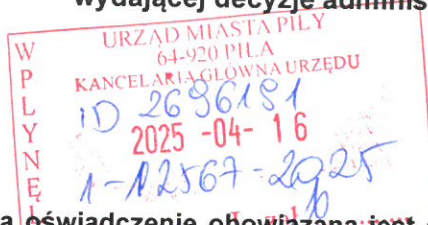 wydającej decyzje adminis
URZĄD MIASTA PIŁY
64-920 PIŁA
KANCELARIA GŁÓWNA URZĘDU
WPŁYNĘ
ID 2696191
2025 -04- 16
1-12567-2025
a oświadczenie obowiązana jest